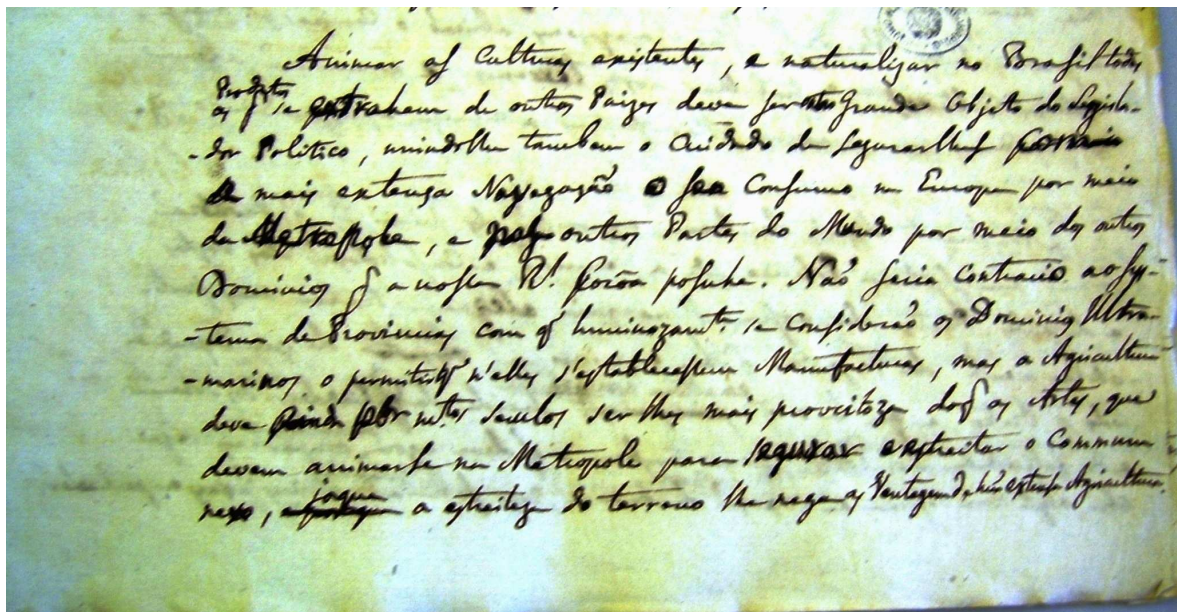 Animar as Culturas existentes, e naturalizar no Brasil todos
Productos
os q̃ se extrahem de outros Paizes deve ser outro Grande Objeto do Legisla-
-dor Politico, unindo lhe tambem o Cuidado de segurar lhes
a mais extensa Navegação e seu Consumo na Europa por meio
da Metropole, e pelas outras Partes do Mundo por meio dos outros
Dominios q̃ a nossa R.l Coroa possuhe. Naõ seria contrario ao Sys-
-tema de Provincias com q̃ luminozam.te se consideraõ os Dominios Ultra-
-marinos o permitir q̃ n'elles s'estabelecessem Manufacturas, mas a Agricultura
deve ainda por m.tos Seculos ser lhes mais proveitoza do q̃ as Artes, que
devem animarse na Metropole para segurar e estreitar o Commum
nexo, jaque a estreiteza do terreno lhe nega as Ventagens de huã extensa Agricultura.